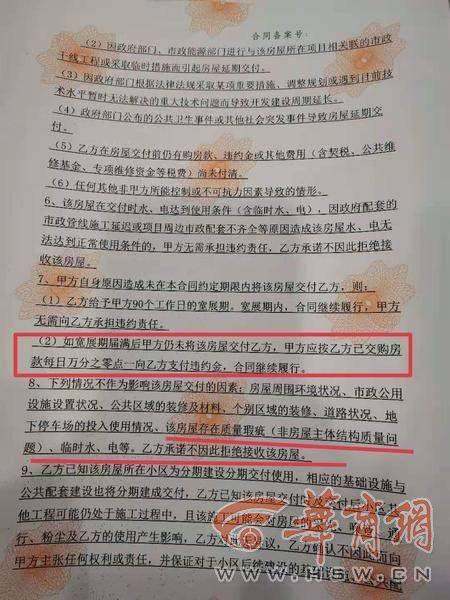 合同备案号:
(2)因政府部门、市政能源部门进行与该房屋所在项目相关联的市政
干线工程或采取临时措施而引起房屋延期交付。
(3)因政府部门根据法律法规采取某项要措施、调整规划或遇到付前技
术水平暂时无法解决的重大技术问题而导致开发建设周期延长。
(4)政府部门公布的公共卫生事件或其他社会突发事件导致房屋延期交
付。
(5)乙方在房屋交付前仍有购房款、违约金或其他费用(含契税、公共维
修基金、专项维修资金等税费)尚未付清。
(6)任何其他非甲方所能控制或不可抗力因素导致的情形。
6、该房屋在交付时水、电达到使用条件(含临时水、电),因政府配套的
市政管线施工延迟或项目周边市政配套不齐全等原因造成该房屋水、电无
法达到正常使用条件的,甲方无需承担违约责任,乙方承诺不因此拒绝接
收该房屋。
7、甲方自身原因造成未在本合同约定期限内将该房屋交付乙方,则:
(1)乙方给予甲方90个工作日的宽展期。宽展期内,合同继续履行,甲方
无需向乙方承担违约责任。
(2)如宽展期届满后甲方仍未将该房屋交付乙方,甲方应按乙方已交购房
款每日万分之零点一向乙方支付违约金,合同继续履行。
8、下列情况不作为影响该房屋交付的因素:房屋周围环境状况、市政公用
设施设置状况、公共区域的装修及材料、个别区域的装修、道路状况、地
下停车场的投入使用情况、该房屋存在质量瑕疵(非房屋主体结构质量问
题)、临时水、电等。乙方承诺不因此拒绝接收该房屋。
9、乙方已知该房屋所在小区为分期建设分期交付使用,相应的基础设施与
公共配套建设也将分期建成交付,乙方已知该房屋交付时及交付后小区其
他工程可能仍处于施工过程中,且该施工可能会对房屋的
行、粉尘及乙方的使用产生影响,乙方对此无异议,乙方确认不因此而向
甲方主张任何权利或责任,并保证对于小区后续建设的
华商网
WWW.HSW.CN